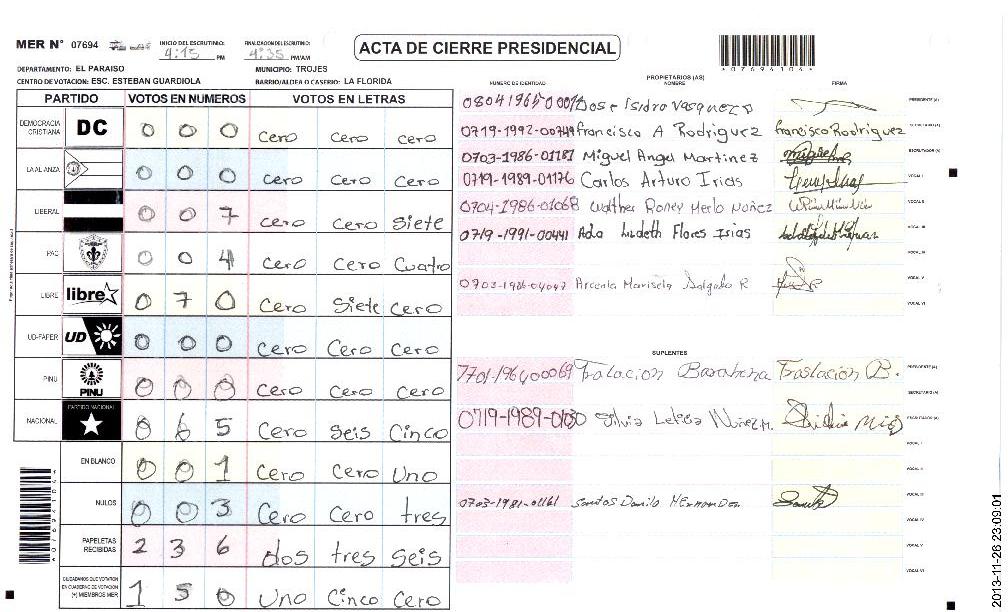 MER N° 07694
INICIO DEL ESCRUTINIO: 4:15 PM
FINALIZACION DEL ESCRUTINIO: 4:35 PM/AM
ACTA DE CIERRE PRESIDENCIAL
*07694104*
DEPARTAMENTO: EL PARAISO
MUNICIPIO: TROJES
CENTRO DE VOTACION: ESC. ESTEBAN GUARDIOLA
BARRIO/ALDEA O CASERIO: LA FLORIDA
PARTIDO VOTOS EN NUMEROS VOTOS EN LETRAS
DEMOCRACIA CRISTIANA DC 0 0 0 Cero Cero Cero
LA ALIANZA 0 0 0 Cero Cero Cero
LIBERAL 0 0 7 Cero Cero Siete
PAC 0 0 4 Cero Cero Cuatro
LIBRE libre 0 7 0 Cero Siete Cero
UD-FAPER UD 0 0 0 Cero Cero Cero
PINU PINU 0 0 0 Cero Cero Cero
NACIONAL PARTIDO NACIONAL 0 6 5 Cero Seis Cinco
EN BLANCO 0 0 1 Cero Cero Uno
NULOS 0 0 3 Cero Cero tres
PAPELETAS RECIBIDAS 2 3 6 dos tres Seis
CIUDADANOS QUE VOTARON EN CUADERNO DE VOTACION (+) MIEMBROS MER 1 5 0 Uno Cinco Cero
PROPIETARIOS (AS)
NUMERO DE IDENTIDAD NOMBRE FIRMA
Jose Isidro Vasquez PRESIDENTE (A)
0719-1992-00749 francisco A Rodriguez francisco Rodriguez SECRETARIO (A)
0703-1986-01181 Miguel Angel Martinez ESCRUTADOR (A)
0719-1989-01176 Carlos Arturo Irias VOCAL I
0704-1986-01068 Walther Roney Merlo Nuñez VOCAL II
0719-1991-00441 Ada Lideth Flores Irias VOCAL III
VOCAL IV
Marisela Salgado R VOCAL V
VOCAL VI
SUPLENTES
Traslacion Barahona Traslación B. PRESIDENTE (A)
SECRETARIO (A)
Silvia Leticia Nuñez M. ESCRUTADOR (A)
VOCAL I
VOCAL II
0703-1981-01161 Santos Danilo VOCAL III
VOCAL IV
VOCAL V
VOCAL VI
2013-11-26 23:09:01